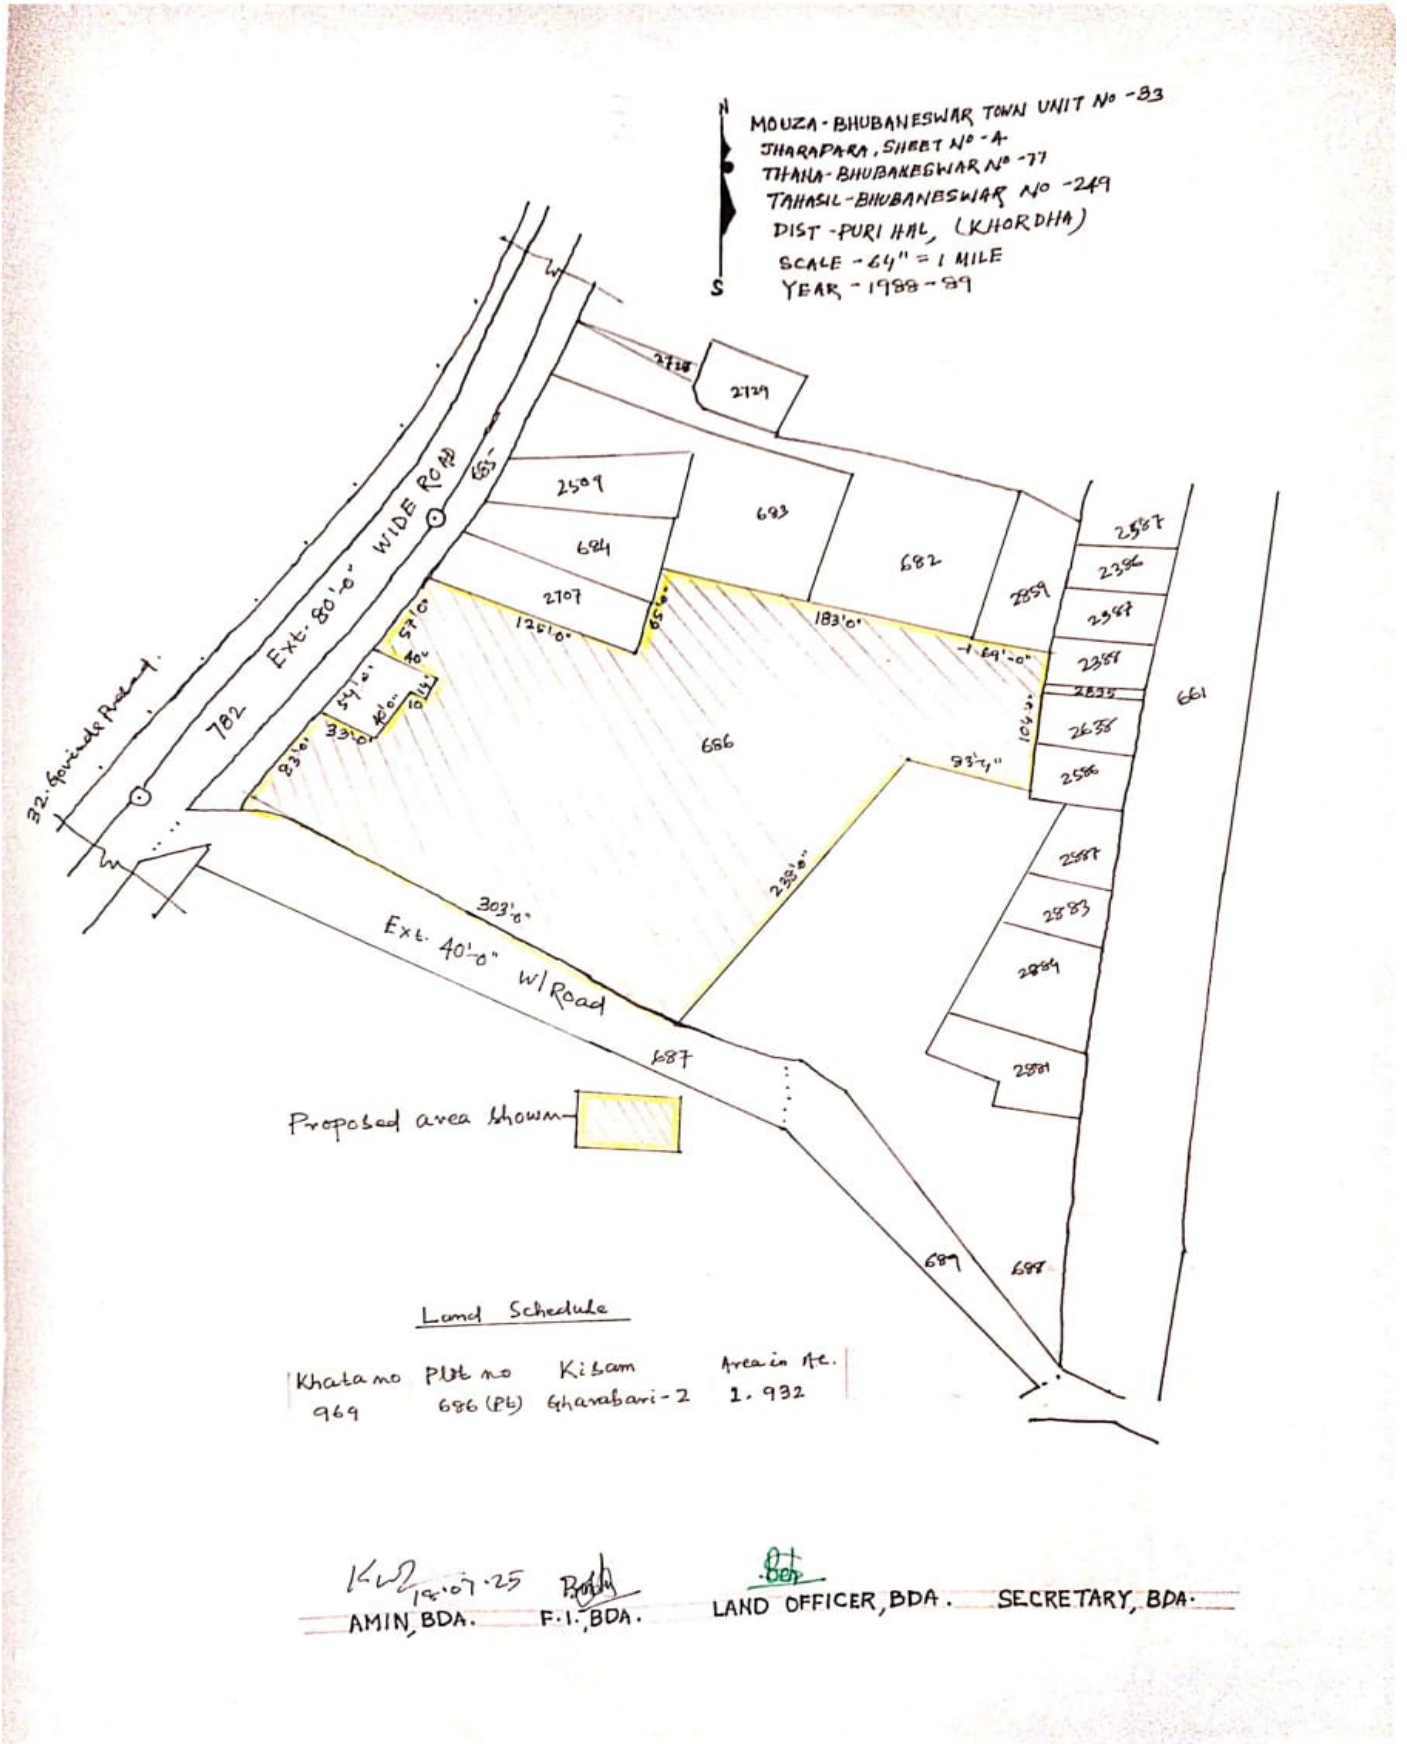 N
MOUZA-BHUBANESWAR TOWN UNIT No -33
JHARAPARA, SHEET No -4
THANA-BHUBANESWAR No -77
TAHASIL-BHUBANESWAR NO -249
DIST -PURI HAL, (KHORDHA)
SCALE -64" = 1 MILE
S
YEAR -1988-89
2728
2729
2509
683
684
682
2707
2859
2587
2386
2387
2388
2835
2638
2586
661
685
Ext. 80'-0" WIDE ROAD
782
57'0"
125'0"
65'0"
183'0"
69'-0"
40'
54'0"
14'
10
40'0"
33'0"
83'0"
686
104'-0"
83'-4"
238'0"
303'0"
Ext. 40'-0" W/ Road
687
2887
2883
2884
2881
Proposed area shown
689
688
Land Schedule
Khata no Plot no Kisam Area in Ac.
969 686 (Pt) Gharabari-2 1.932
18.07.25
AMIN, BDA. F.I., BDA. LAND OFFICER, BDA. SECRETARY, BDA.